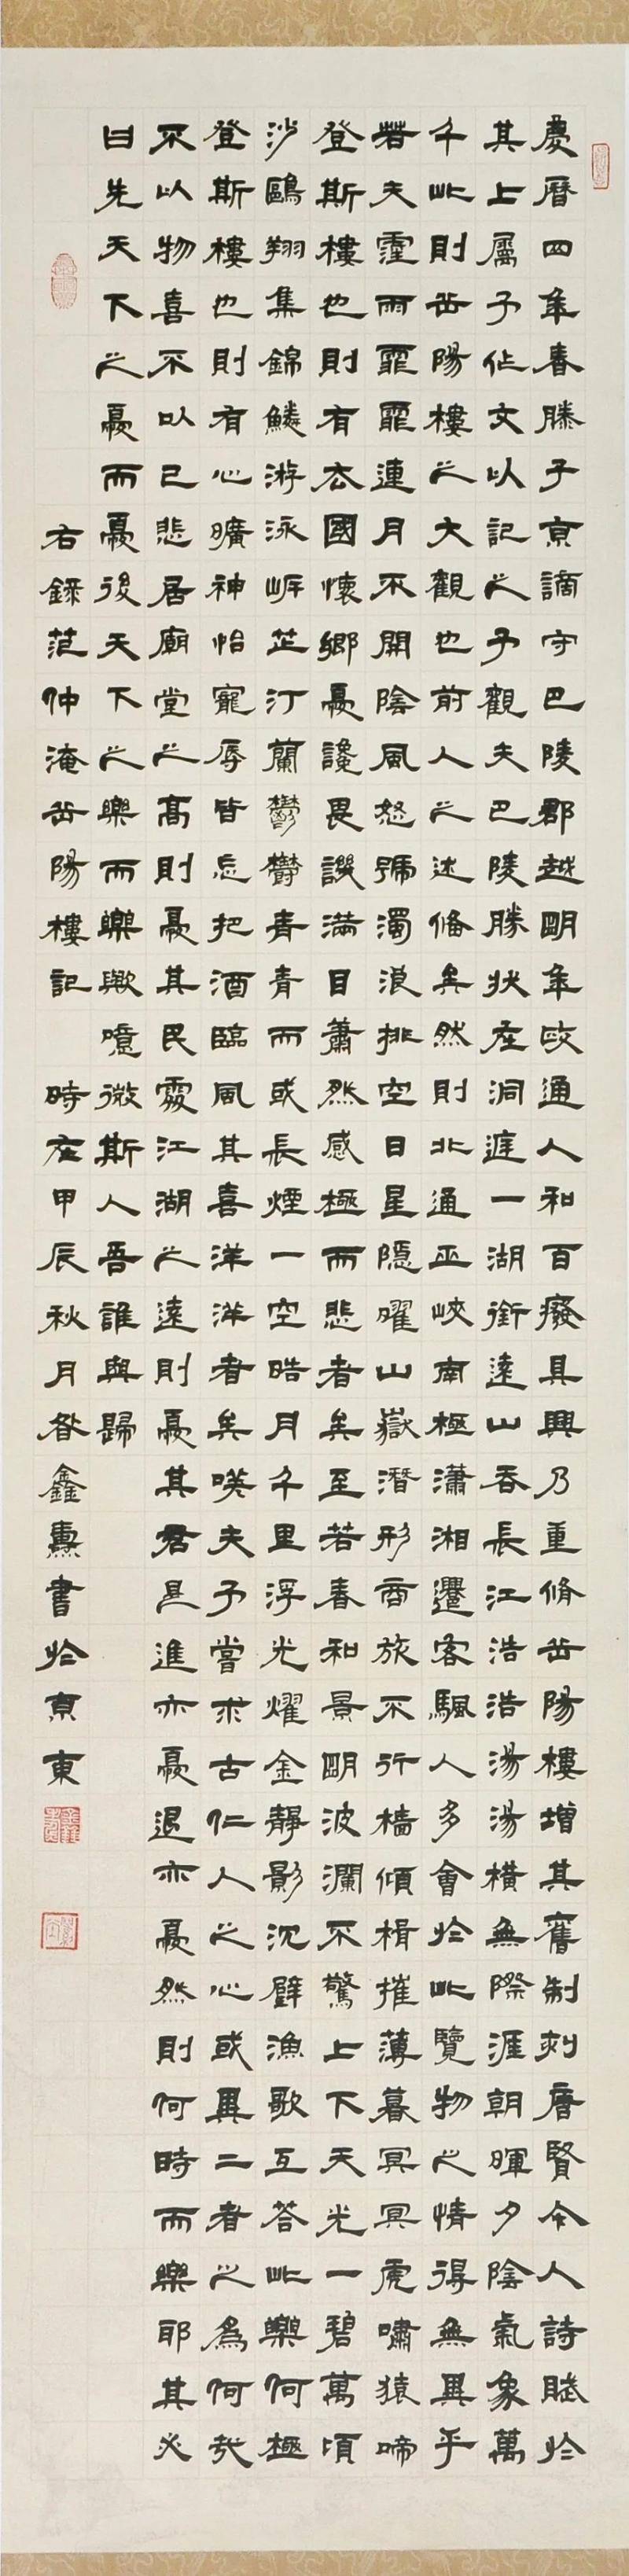 慶曆四年春滕子京謫守巴陵郡越明年政通人和百廢具興乃重脩岳陽樓增其舊制刻唐賢今人詩賦於
其上屬予作文以記之予觀夫巴陵勝狀在洞庭一湖銜遠山吞長江浩浩湯湯橫無際涯朝暉夕陰氣象萬
千此則岳陽樓之大觀也前人之述備矣然則北通巫峽南極瀟湘遷客騷人多會於此覽物之情得無異乎
若夫霪雨霏霏連月不開陰風怒號濁浪排空日星隱曜山嶽潛形商旅不行檣傾楫摧薄暮冥冥虎嘯猿啼
登斯樓也則有去國懷鄉憂讒畏譏滿目蕭然感極而悲者矣至若春和景明波瀾不驚上下天光一碧萬頃
沙鷗翔集錦鱗游泳岸芷汀蘭鬱鬱青青而或長煙一空皓月千里浮光燿金靜影沉璧漁歌互答此樂何極
登斯樓也則有心曠神怡寵辱皆忘把酒臨風其喜洋洋者矣嗟夫予嘗求古仁人之心或異二者之為何哉
不以物喜不以己悲居廟堂之高則憂其民處江湖之遠則憂其君是進亦憂退亦憂然則何時而樂耶其必
曰先天下之憂而憂後天下之樂而樂歟噫微斯人吾誰與歸
右錄范仲淹岳陽樓記 時在甲辰秋月昝鑫書於京東